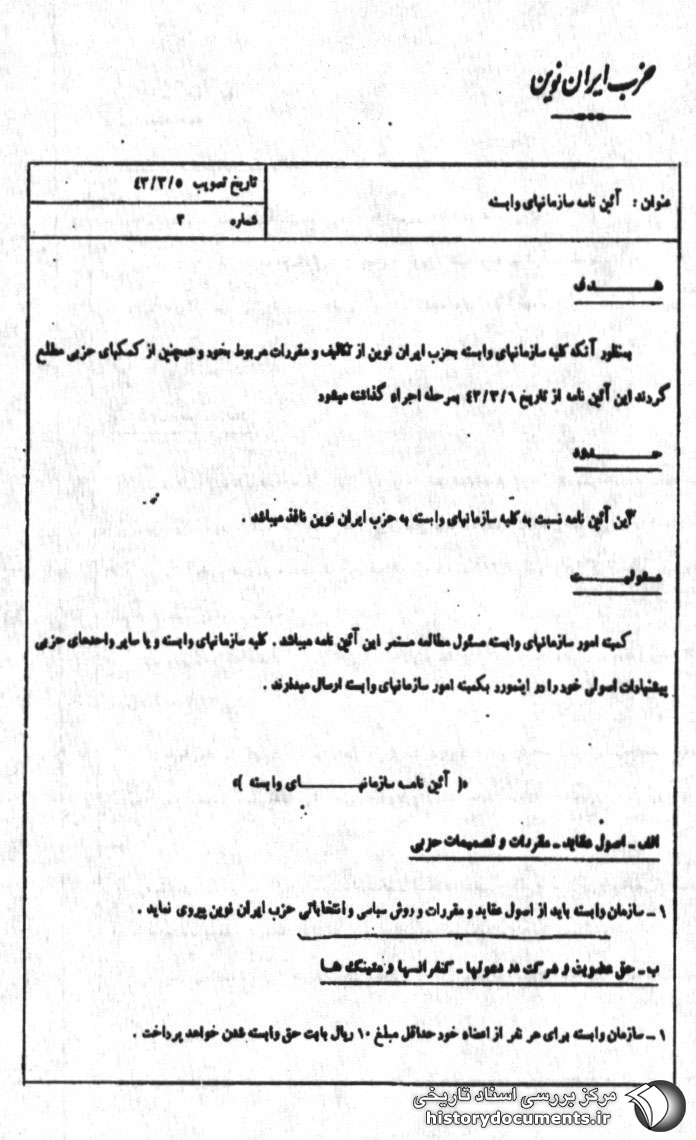 حزب ایران نوین
عنوان : آئین نامه سازمانهای وابسته
تاریخ تصویب ۴۳/۳/۵
شماره ۳
هـــــدف
بمنظور آنکه کلیه سازمانهای وابسته بحزب ایران نوین از تکالیف و مقررات مربوط بخود و همچنین از کمکهای حزبی مطلع
گردند این آئین نامه از تاریخ ۴۳/۳/۶ بمرحله اجراء گذاشته میشود
حـــــدود
این آئین نامه نسبت به کلیه سازمانهای وابسته به حزب ایران نوین نافذ میباشد .
مسئولیـــت
کمیته امور سازمانهای وابسته مسئول مطالعه مستمر این آئین نامه میباشد . کلیه سازمانهای وابسته و یا سایر واحدهای حزبی
پیشنهادات اصولی خود را در اینمورد بکمیته امور سازمانهای وابسته ارسال میدارند .
«( آئین نامه سازمانهـــــای وابسته )»
الف ـ اصول عقاید ـ مقررات و تصمیمات حزبی
۱ ـ سازمان وابسته باید از اصول عقاید و مقررات و روش سیاسی و انتخاباتی حزب ایران نوین پیروی نماید .
ب ـ حق عضویت و شرکت در دعوتها ـ کنفرانسها و متینگ ها
۱ ـ سازمان وابسته برای هر نفر از اعضاء خود حداقل مبلغ ۱۰ ریال بابت حق وابسته شدن خواهد پرداخت .
مرکز بررسی اسناد تاریخی
historydocuments.ir